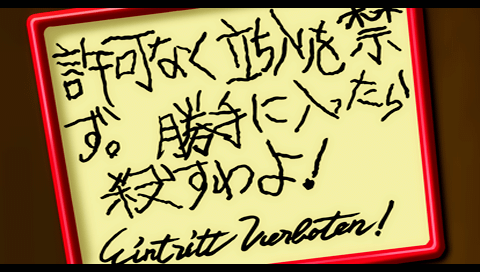 許可なく立ち入りを禁
ず。勝手に入ったら
殺すわよ!
Eintritt Verboten!